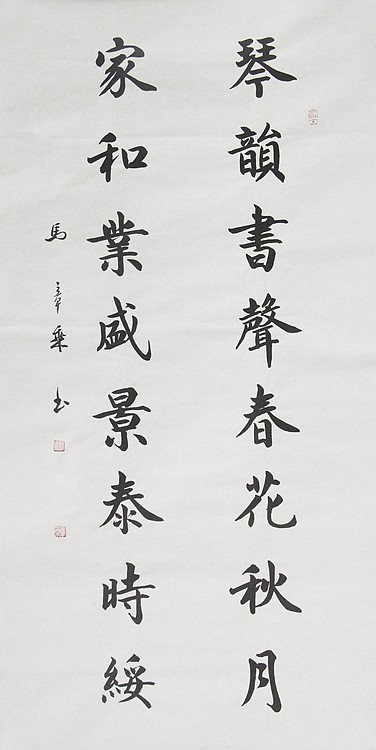 琴韻書聲春花秋月
家和業盛景泰時綏
馬章乘玉